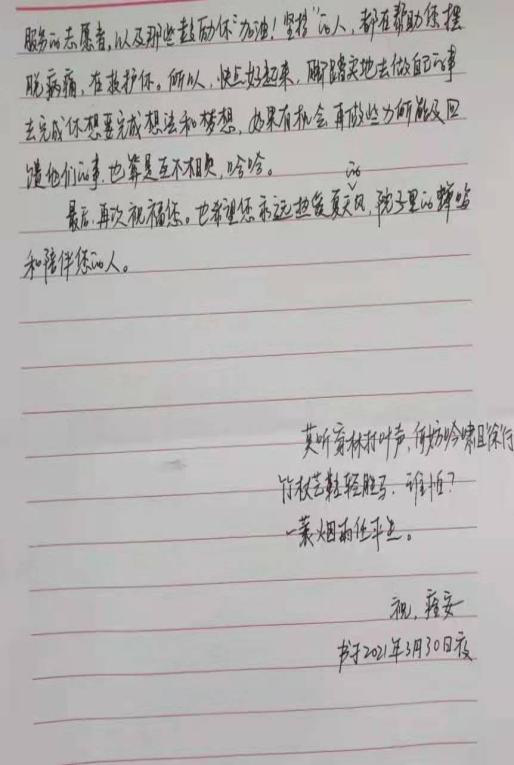 服务的志愿者，以及那些鼓励你“加油！坚持”的人，都在帮助您摆
脱病痛，在救护你。所以，快点好起来，脚踏实地去做自己的事
去完成你想要完成想法和梦想，如果有机会，再做些力所能及回
馈他们的事，也算是互不相欠，哈哈。
最后，再次祝福您。也希望您永远热爱夏天的风，院子里的蝉鸣
和陪伴您的人。
莫听穿林打叶声，何妨吟啸且徐行
竹杖芒鞋轻胜马，谁怕？
一蓑烟雨任平生。
祝，痊安
书于2021年3月30日夜